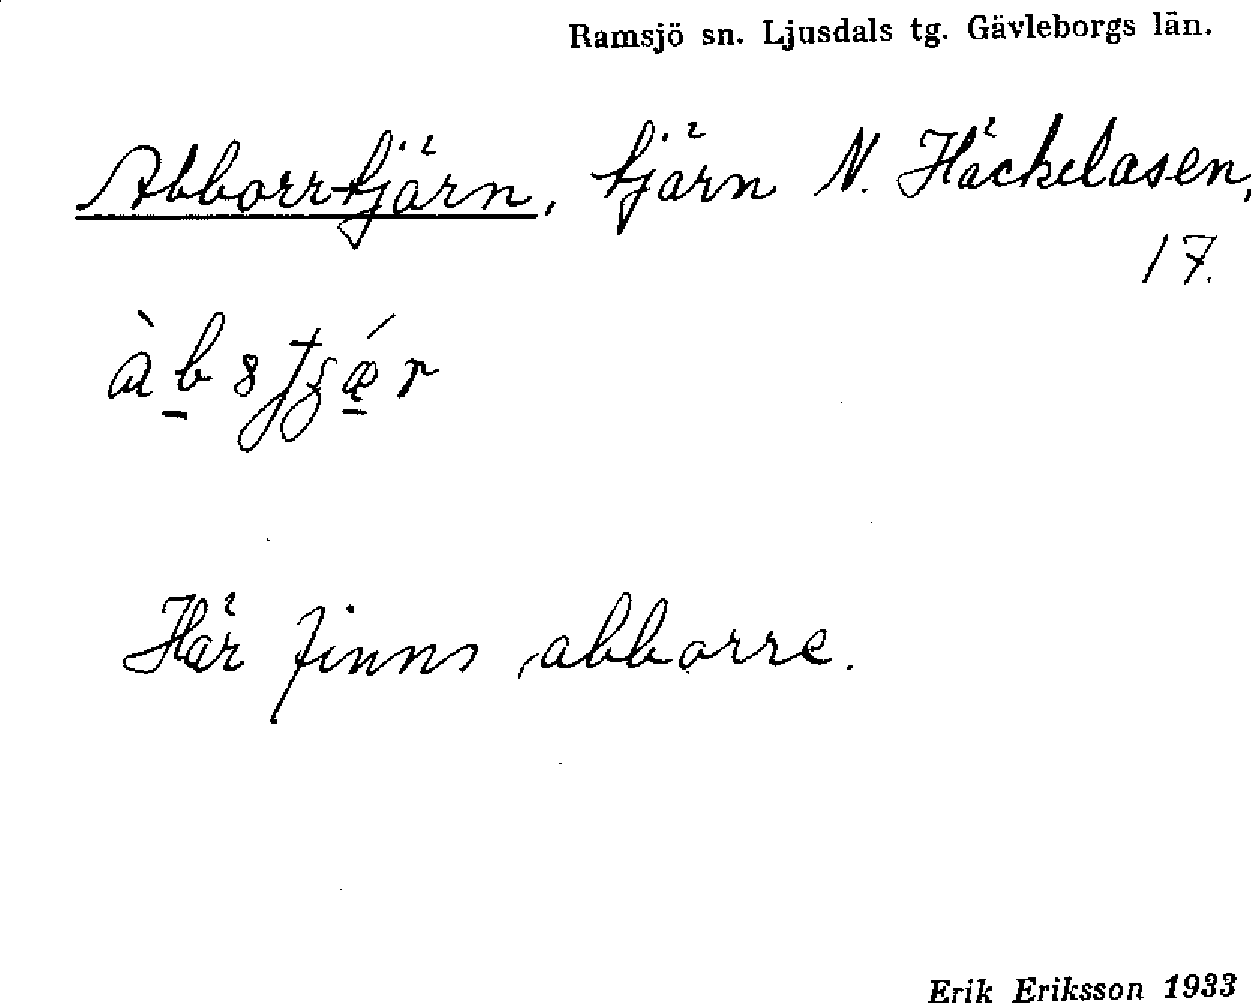 Ramsjö sn. Ljusdals tg. Gävleborgs län.
Abborrtjärn, tjärn N. Häckelåsen,
17.
Här finns abborre.
Erik Eriksson 1933